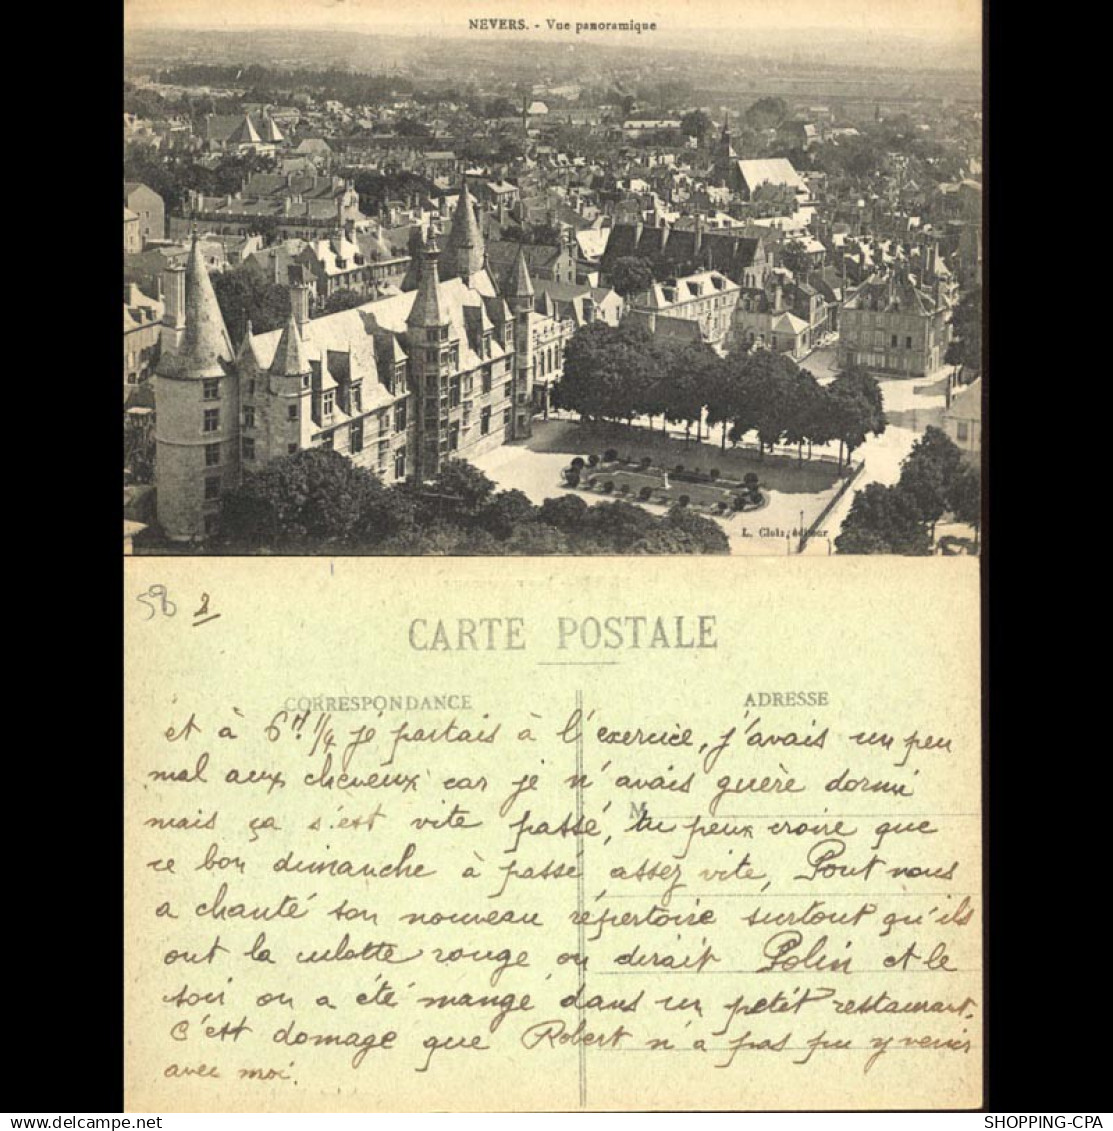 NEVERS. - Vue panoramique
L. Cloix, éditeur
58 2
CARTE POSTALE
CORRESPONDANCE
ADRESSE
M
et à 6H 1/4 je partais à l'exercice, j'avais un peu
mal aux cheveux car je n'avais guère dormi
mais ça s'est vite passé, tu peux croire que
ce bon dimanche à passé assez vite, Pout nous
a chanté son nouveau répertoire surtout qu'ils
ont la culotte rouge on dirait Polin et le
soir on a été mangé dans un petit restaurant.
C'est domage que Robert n'a pas pu y venir
avec moi.
SHOPPING-CPA